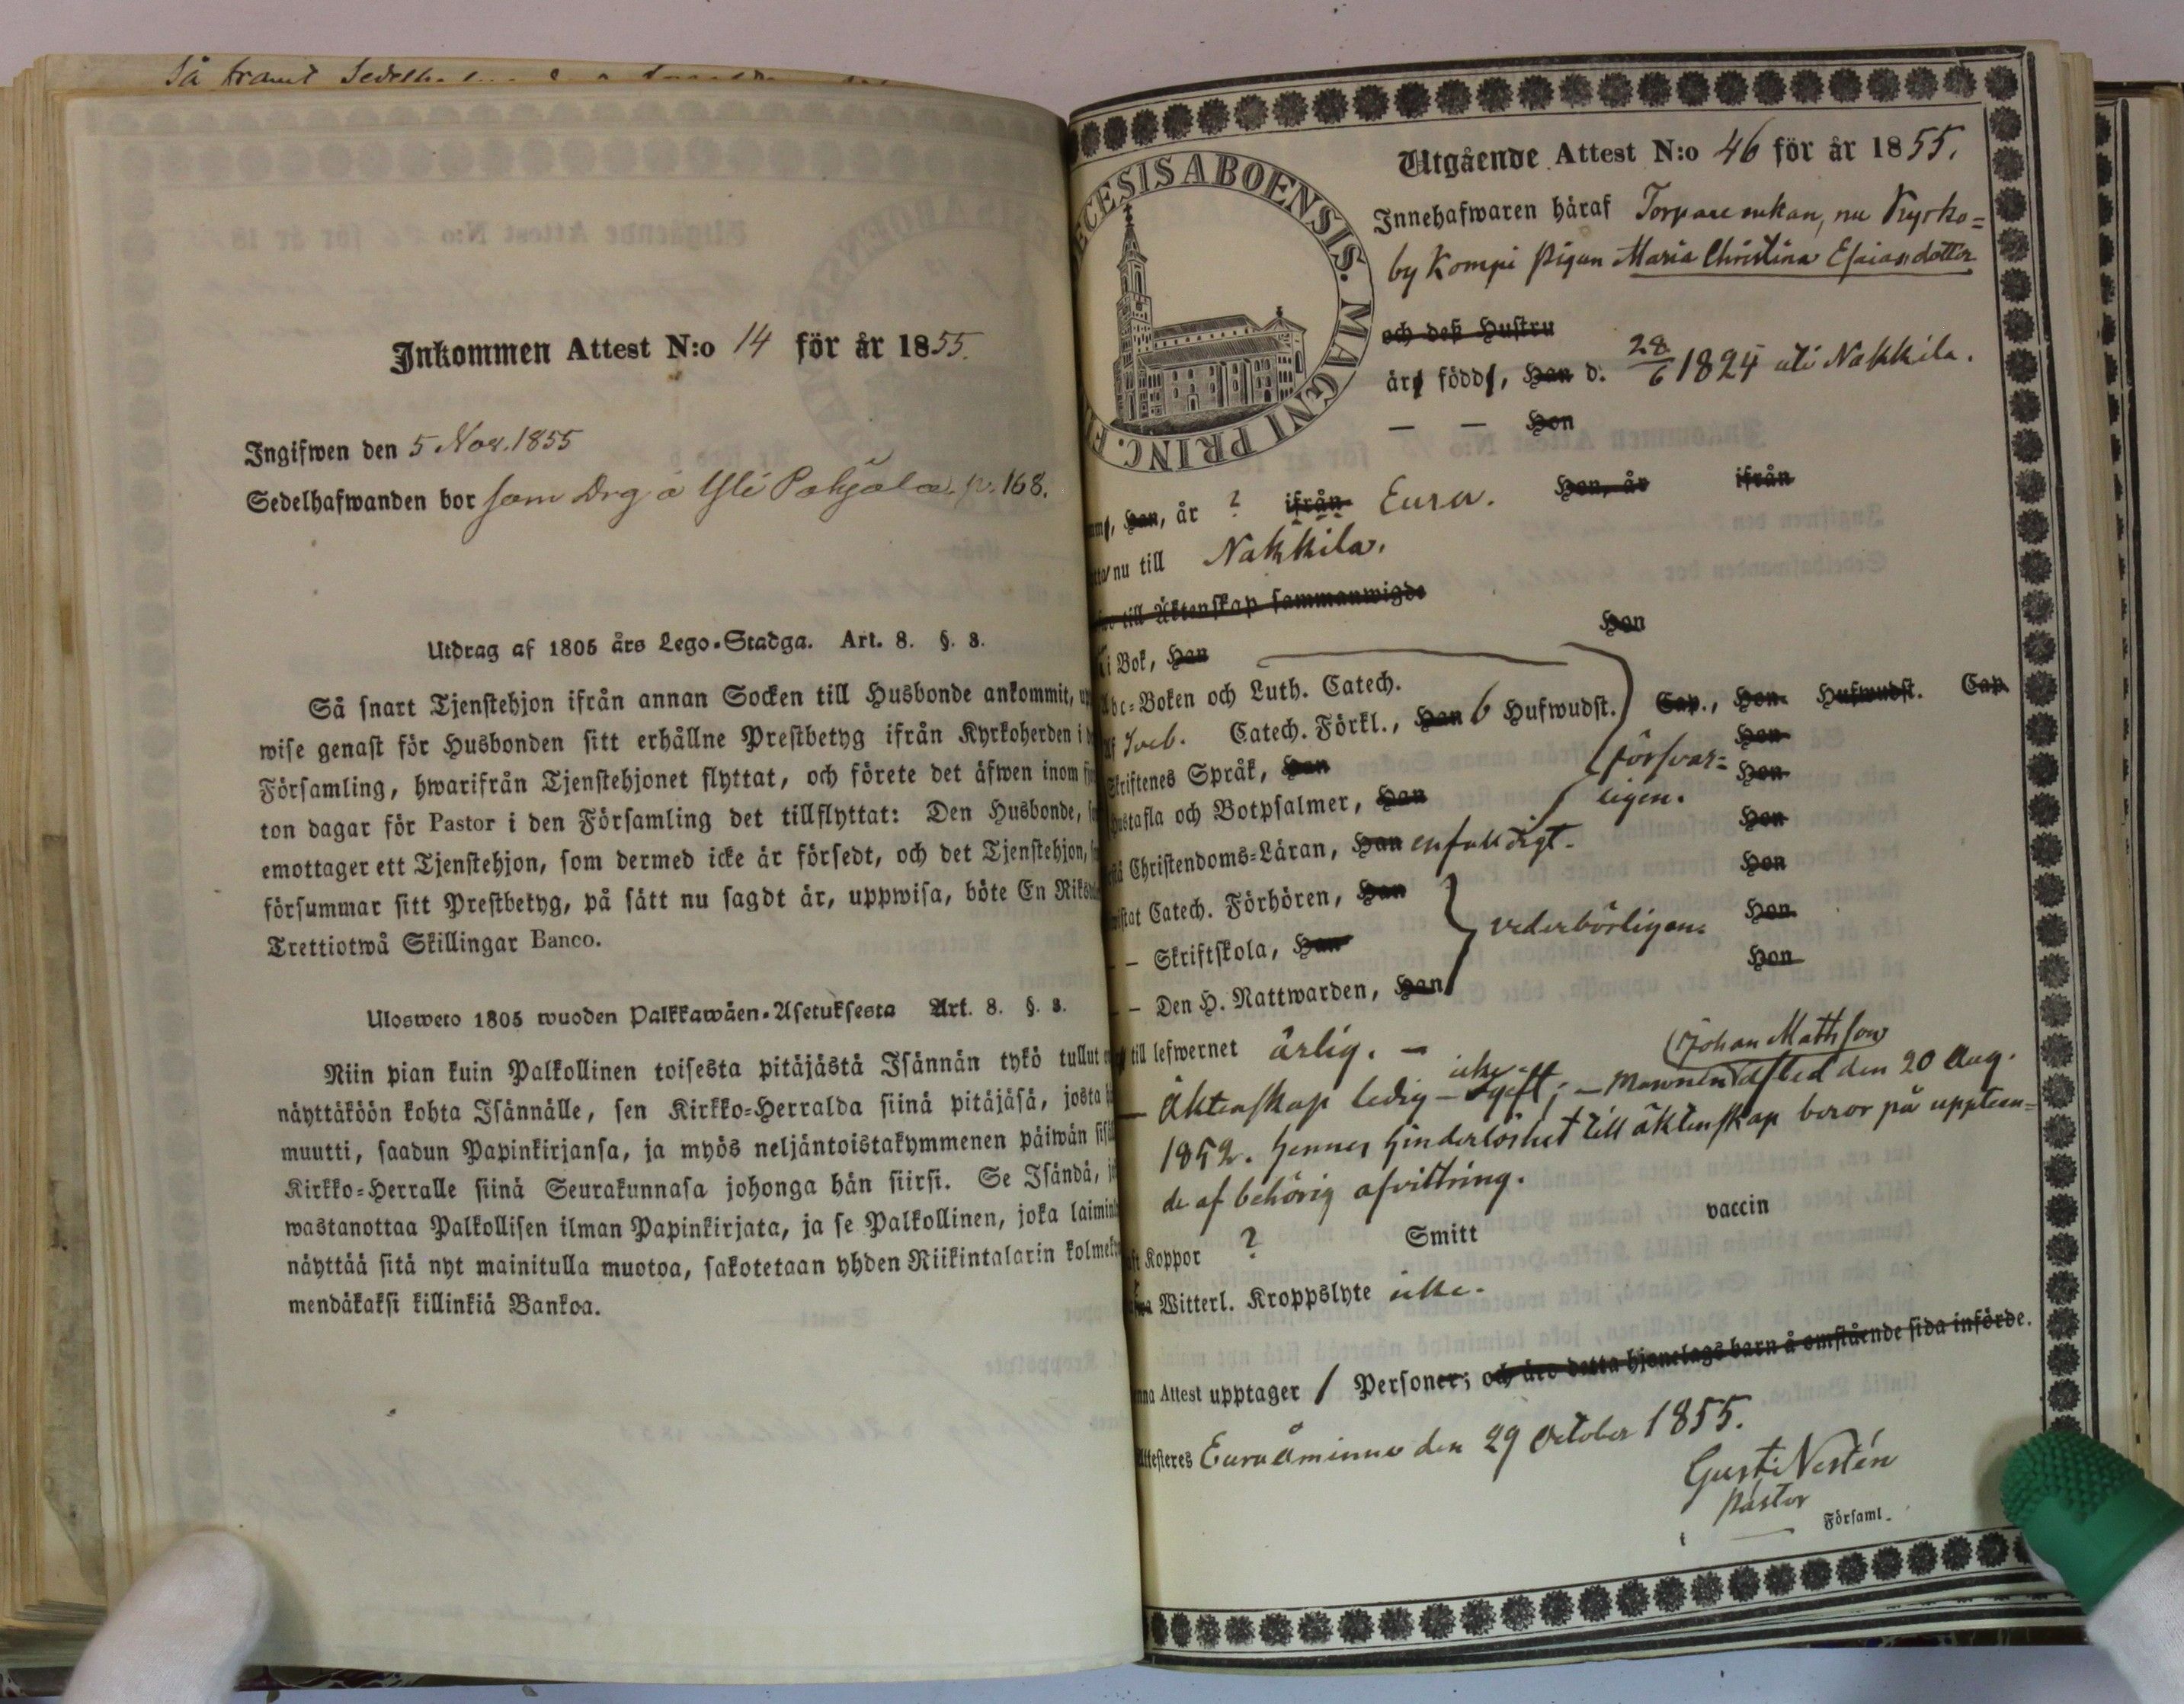 Så snart Sedelh
Inkommen Attest N:o 14 för år 1855.
Ingifwen den 5 Nov. 1855
Sedelhafwanden bor som Drg å Yli Pohjala. p. 168.
Utdrag af 1805 års Lego-Stadga. Art. 8. §. 3.
Så snart Tjenstehjon ifrån annan Socken till Husbonde ankommit, up
wise genast för Husbonden sitt erhållne Prestbetyg ifrån Kyrkoherden i d
Församling, hwarifrån Tjenstehjonet flyttat, och förete det äfwen inom fj
ton dagar för Pastor i den Församling det tillflyttat: Den Husbonde, s
emottager ett Tjenstehjon, som dermed icke är försedt, och det Tjenstehjon,
försummar sitt Prestbetyg, på sätt nu sagdt är, uppwisa, böte En Riks
Trettiotwå Skillingar Banco.
Ulosweto 1805 wuoden Palkkawäen-Asetuksesta Art. 8. §. 3.
Niin pian kuin Palkollinen toisesta pitäjästä Isännän tykö tullut
näyttäköön kohta Isännälle, sen Kirkko-Herralda siinä pitäjäsä, josta
muutti, saadun Papinkirjansa, ja myös neljäntoistakymmenen päiwän sisä
Kirkko-Herralle siinä Seurakunnasa johonga hän siirsi. Se Isändä, j
wastanottaa Palkollisen ilman Papinkirjata, ja se Palkollinen, joka laimin
näyttää sitä nyt mainitulla muotoa, sakotetaan yhden Riikintalarin kolmek
mendäkaksi killinkiä Bankoa.
ECESIS ABOENSIS. MAGNI PRINC. F
Utgående Attest N:o 46 för år 1855.
Innehafwaren häraf Torpareenkan, nu Kyrko=
by Kompi pigan Maria Christina Esaiasdotter
och deß Hustru
är född, Han d. 28/6 1824 uti Nakkila.
— — Hon
Han, år ? ifrån Eura. Hon, år ifrån
nu till Nakkila.
till Äktenskap sammanwigde
i Bok, Han Hon
Abc-Boken och Luth. Catech.
Sveb. Catech. Förkl., Han 6 Hufwudst. Cap., Hon Hufwudst. Cap.
Skriftenes Språk, Han Hon
försvar=
ligen.
Hustafla och Botpsalmer, Han Hon
Christendoms-Läran, Han enfaldigt. Hon
Catech. Förhören, Han Hon
— Skriftskola, Han vederbörligen. Hon
— Den H. Nattwarden, Han Hon
till lefwernet ärlig. —
(Johan Mathsson)
— Äktenskap ledig — icke gift; — mannen afled den 20 Aug.
1852. Hennes hinderlöshet till äktenskap beror på uppteen=
de af behörig afvittring.
Koppor ? Smitt vaccin
Witterl. Kroppslyte icke.
Attest upptager 1 Personer; och äro detta hjonelags barn å omstående sida införde.
Attesteres Euraåminne den 29 October 1855.
Gust. Nestén
Pastor
i — Församl.